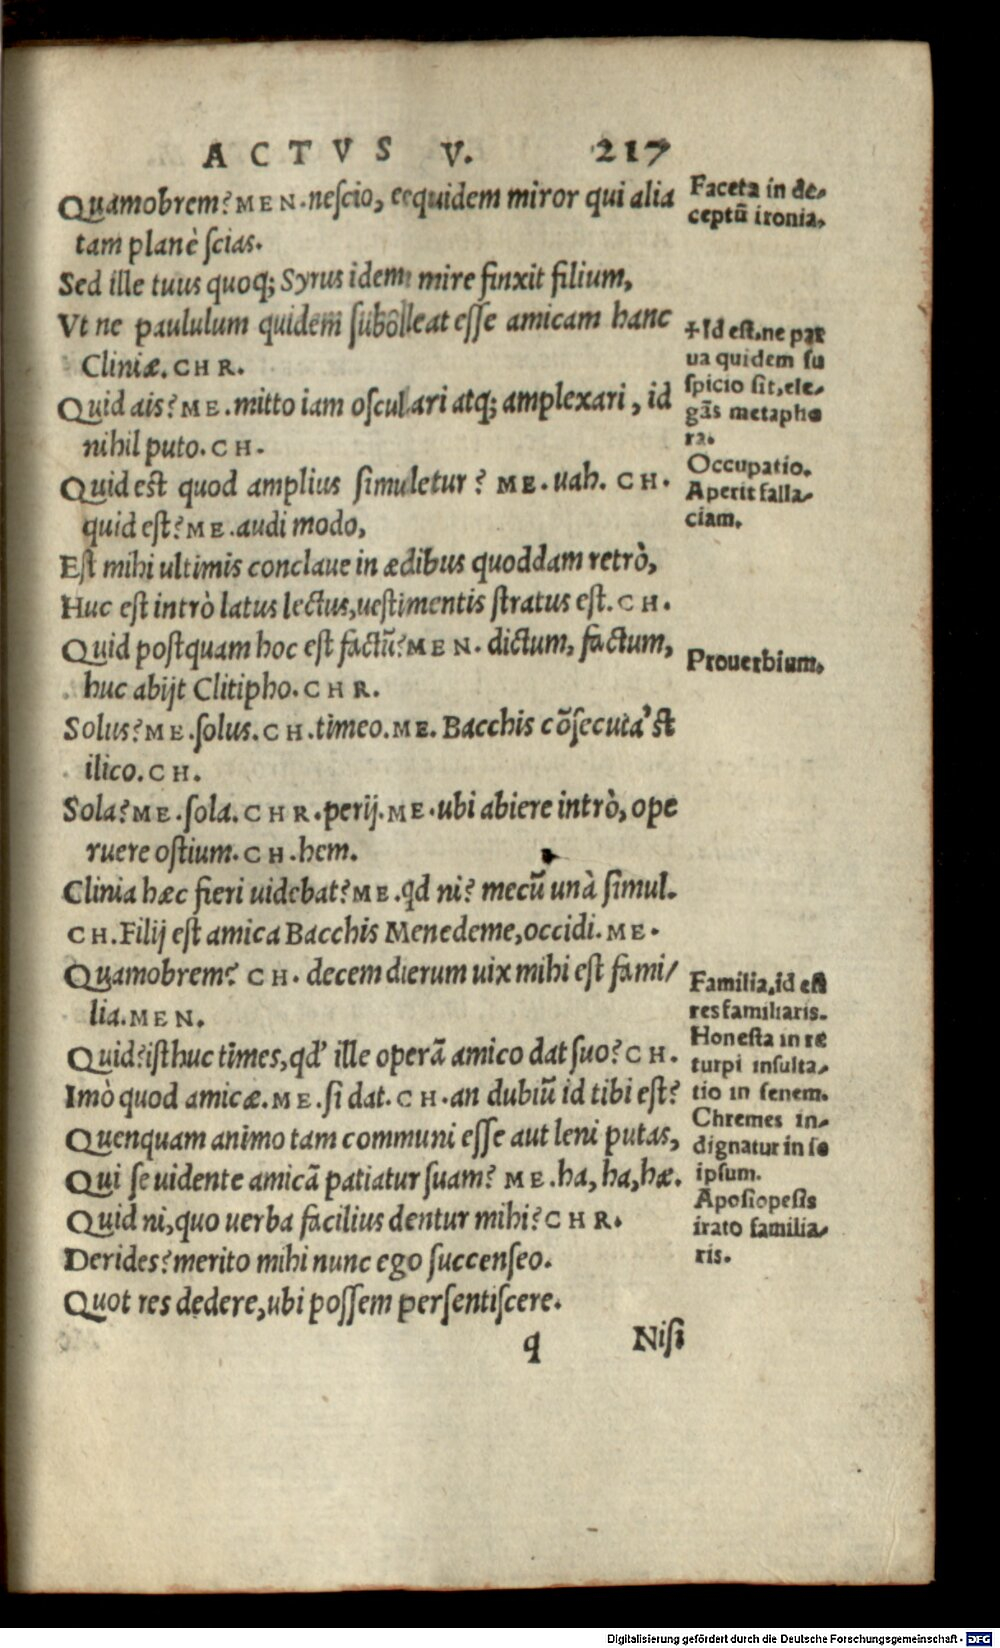 ACTVS V. 217
Quamobrem? MEN. neſcio, eequidem miror qui alia
tam planè ſcias.
Sed ille tuus quoq; Syrus idem mire finxit filium,
Vt ne paululum quidem ſubolleat eſſe amicam hanc
Cliniæ. CHR.
Quid ais? ME. mitto iam oſculari atq; amplexari, id
nihil puto. CH.
Quid est quod amplius ſimuletur? ME. uah. CH.
quid eſt? ME. audi modo,
Eſt mihi ultimis conclaue in ædibus quoddam retrò,
Huc eſt intrò latus lectus, ueſtimentis ſtratus eſt. CH.
Quid poſtquam hoc eſt factũ? MEN. dictum, factum,
huc abijt Clitipho. CHR.
Solus? ME. ſolus. CH. timeo. ME. Bacchis cõſecuta'st
ilico. CH.
Sola? ME. ſola. CHR. perij. ME. ubi abiere intrò, ope
ruere oſtium. CH. hem.
Clinia hæc fieri uidebat? ME. qd ni? mecũ unà ſimul.
CH. Filij eſt amica Bacchis Menedeme, occidi. ME.
Quamobrem? CH. decem dierum uix mihi eſt fami/
lia. MEN.
Quid? iſthuc times, qd' ille operã amico dat ſuo? CH.
Imò quod amicæ. ME. ſi dat. CH. an dubiũ id tibi eſt?
Quenquam animo tam communi eſſe aut leni putas,
Qui ſe uidente amicã patiatur ſuam? ME. ha, ha, hæ.
Quid ni, quo uerba facilius dentur mihi? CHR.
Derides? merito mihi nunc ego ſuccenſeo.
Quot res dedere, ubi poſſem perſentiſcere.
q Niſi
Faceta in de-
ceptũ ironia.
+Id eſt, ne par
ua quidem ſu
ſpicio ſit, ele-
gãs metapho
ra.
Occupatio.
Aperit falla-
ciam.
Prouerbium.
Familia, id eſt
res familiaris.
Honeſta in re
turpi inſulta-
tio in ſenem.
Chremes in-
dignatur in ſe
ipſum.
Apoſiopeſis
irato familia-
ris.
Digitalisierung gefördert durch die Deutsche Forschungsgemeinschaft - DFG